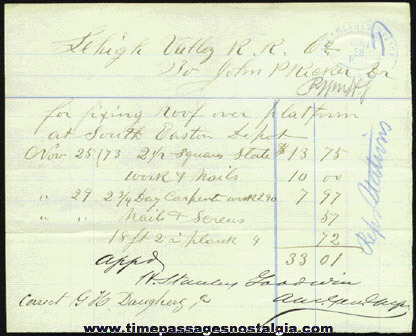 Lehigh Valley R. R. Co
To John P Ricker Dr
for fixing Roof over platform
at South Easton Depot
Nov 25/73 2 1/2 Square Slate $ 13 75
work & Nails 10 00
" 29 2 3/4 Day Carpent work 2.90 7 97
" " Nails & Screws 57
18 ft 2 in plank 4 72
33 01
appd
H Stanley Goodwin
Correct G H Daugherty
Reps Stations
www.timepassagesnostalgia.com